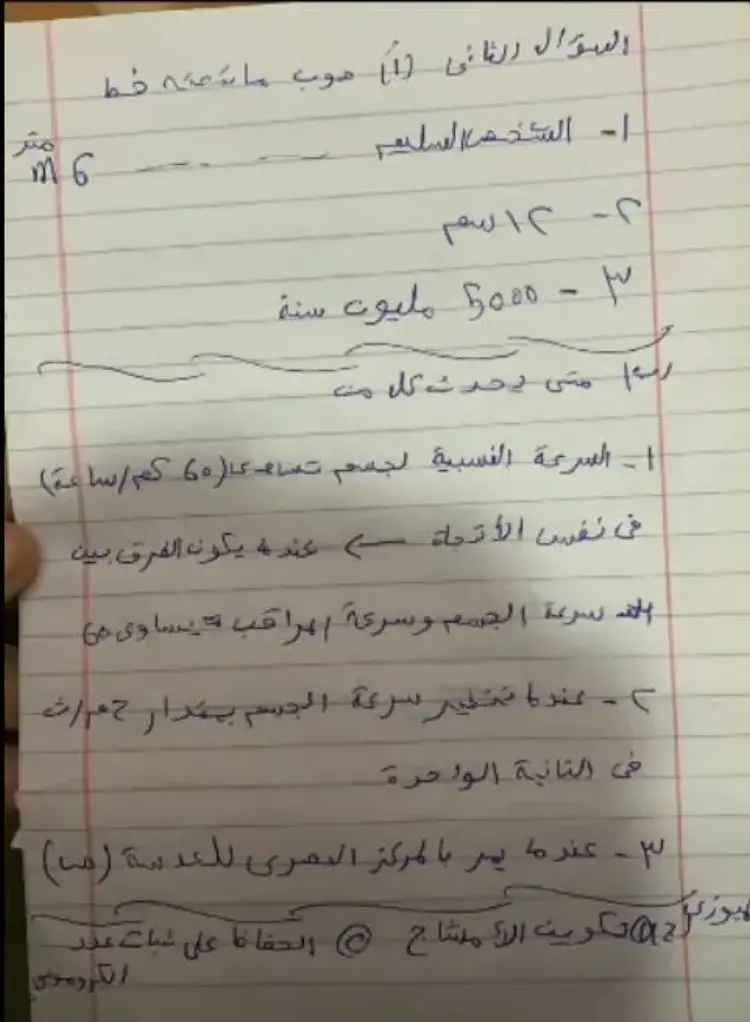 السؤال الثانى (أ) صوب ما تحته خط
١- الشخص السليم --- 6 m متر
٢- ١٢ سم
٣- 5000 مليون سنة
متى يحدث كل من
١- السرعة النسبية لجسم تساوى (60 كم/ساعة)
فى نفس الأتجاة ← عندما يكون الفرق بين
سرعة الجسم وسرعة المراقب = يساوى 60
٢- عندما تتغير سرعة الجسم بمقدار ٢م/ث
فى الثانية الواحدة
٣- عندما يمر بالمركز البصرى للعدسة (م)
تكوين الأمشاج الحفاظ على ثبات عدد